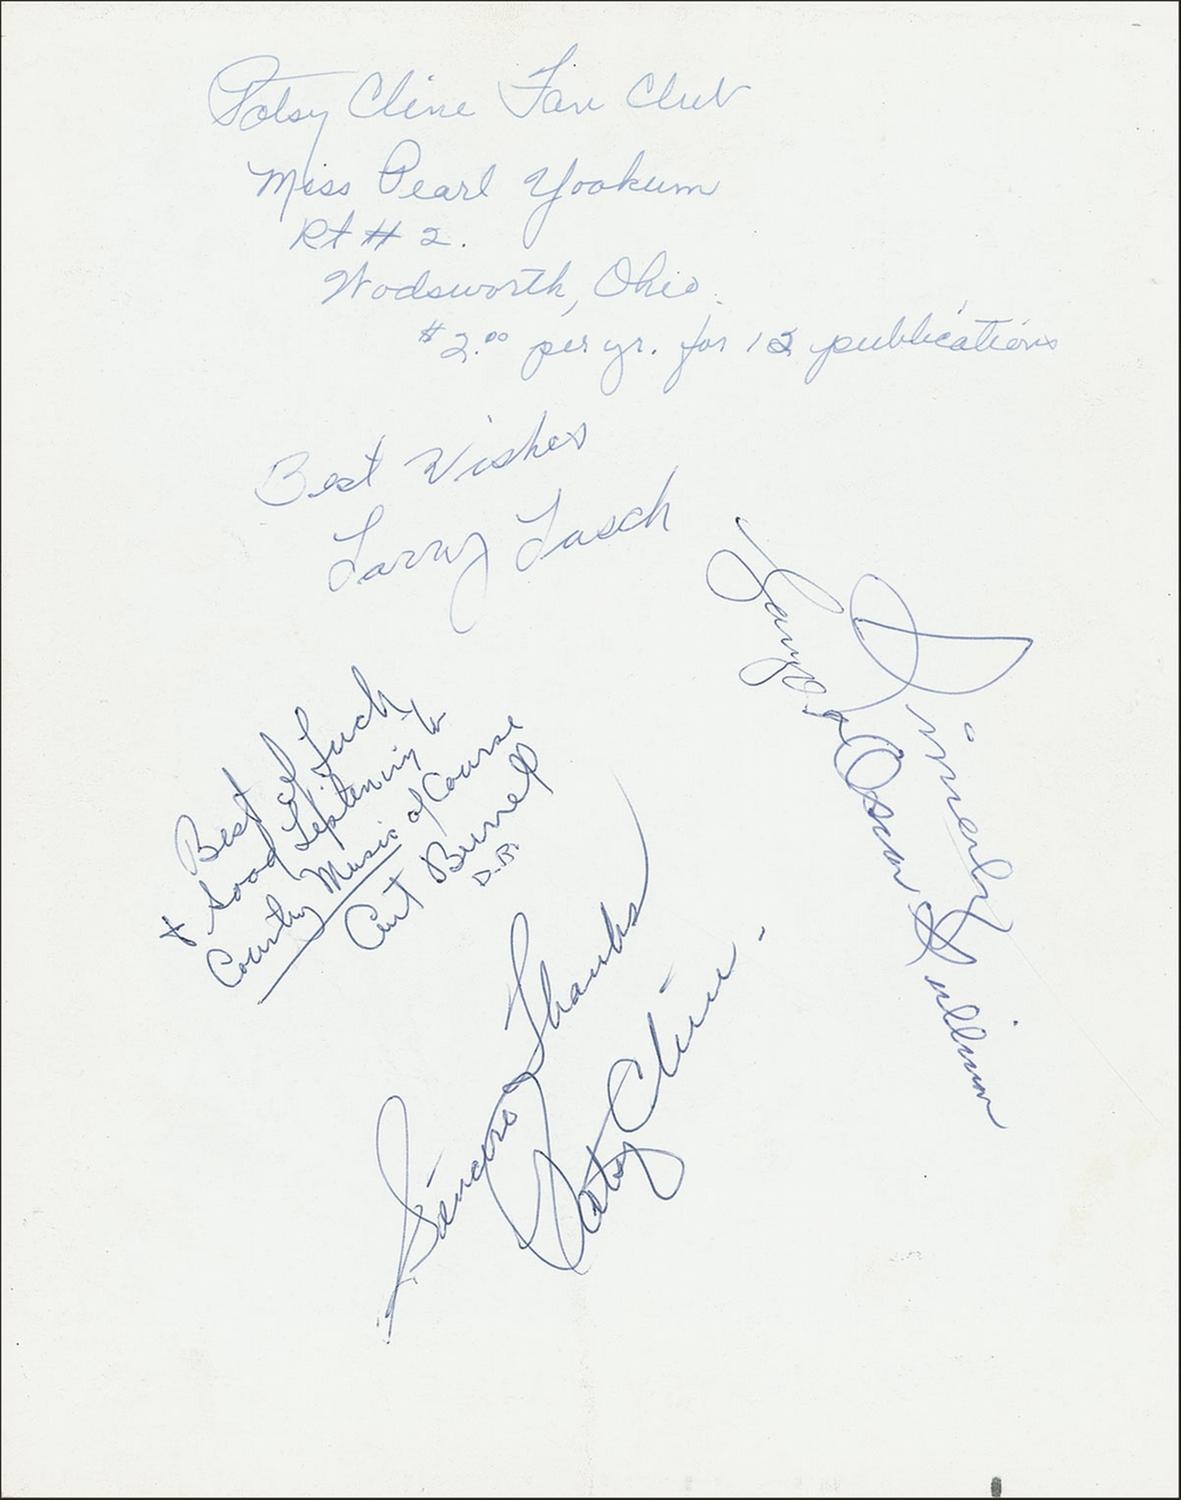 Patsy Cline Fan Club
Miss Pearl Yookum
Rt # 2.
Wodsworth, Ohio.
$2.00 per yr. for 12 publications
Best Wishes
Larry Lasch
Best of Luck
+ Good Listening to
Country Music of Course
Art Burrell
D.B.
Sincere Thanks
Patsy Cline.
Sincerely
Oscar